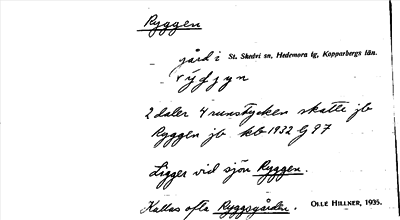 Ryggen
gård i St. Skedvi sn, Hedemora tg, Kopparbergs län.
2 daler 4 runstycken skatte jb
Ryggen jb kb 1932 lj 97
Ligger vid sjön Ryggen.
Kallas ofta Ryggsgården. OLLE HILLNER, 1935.